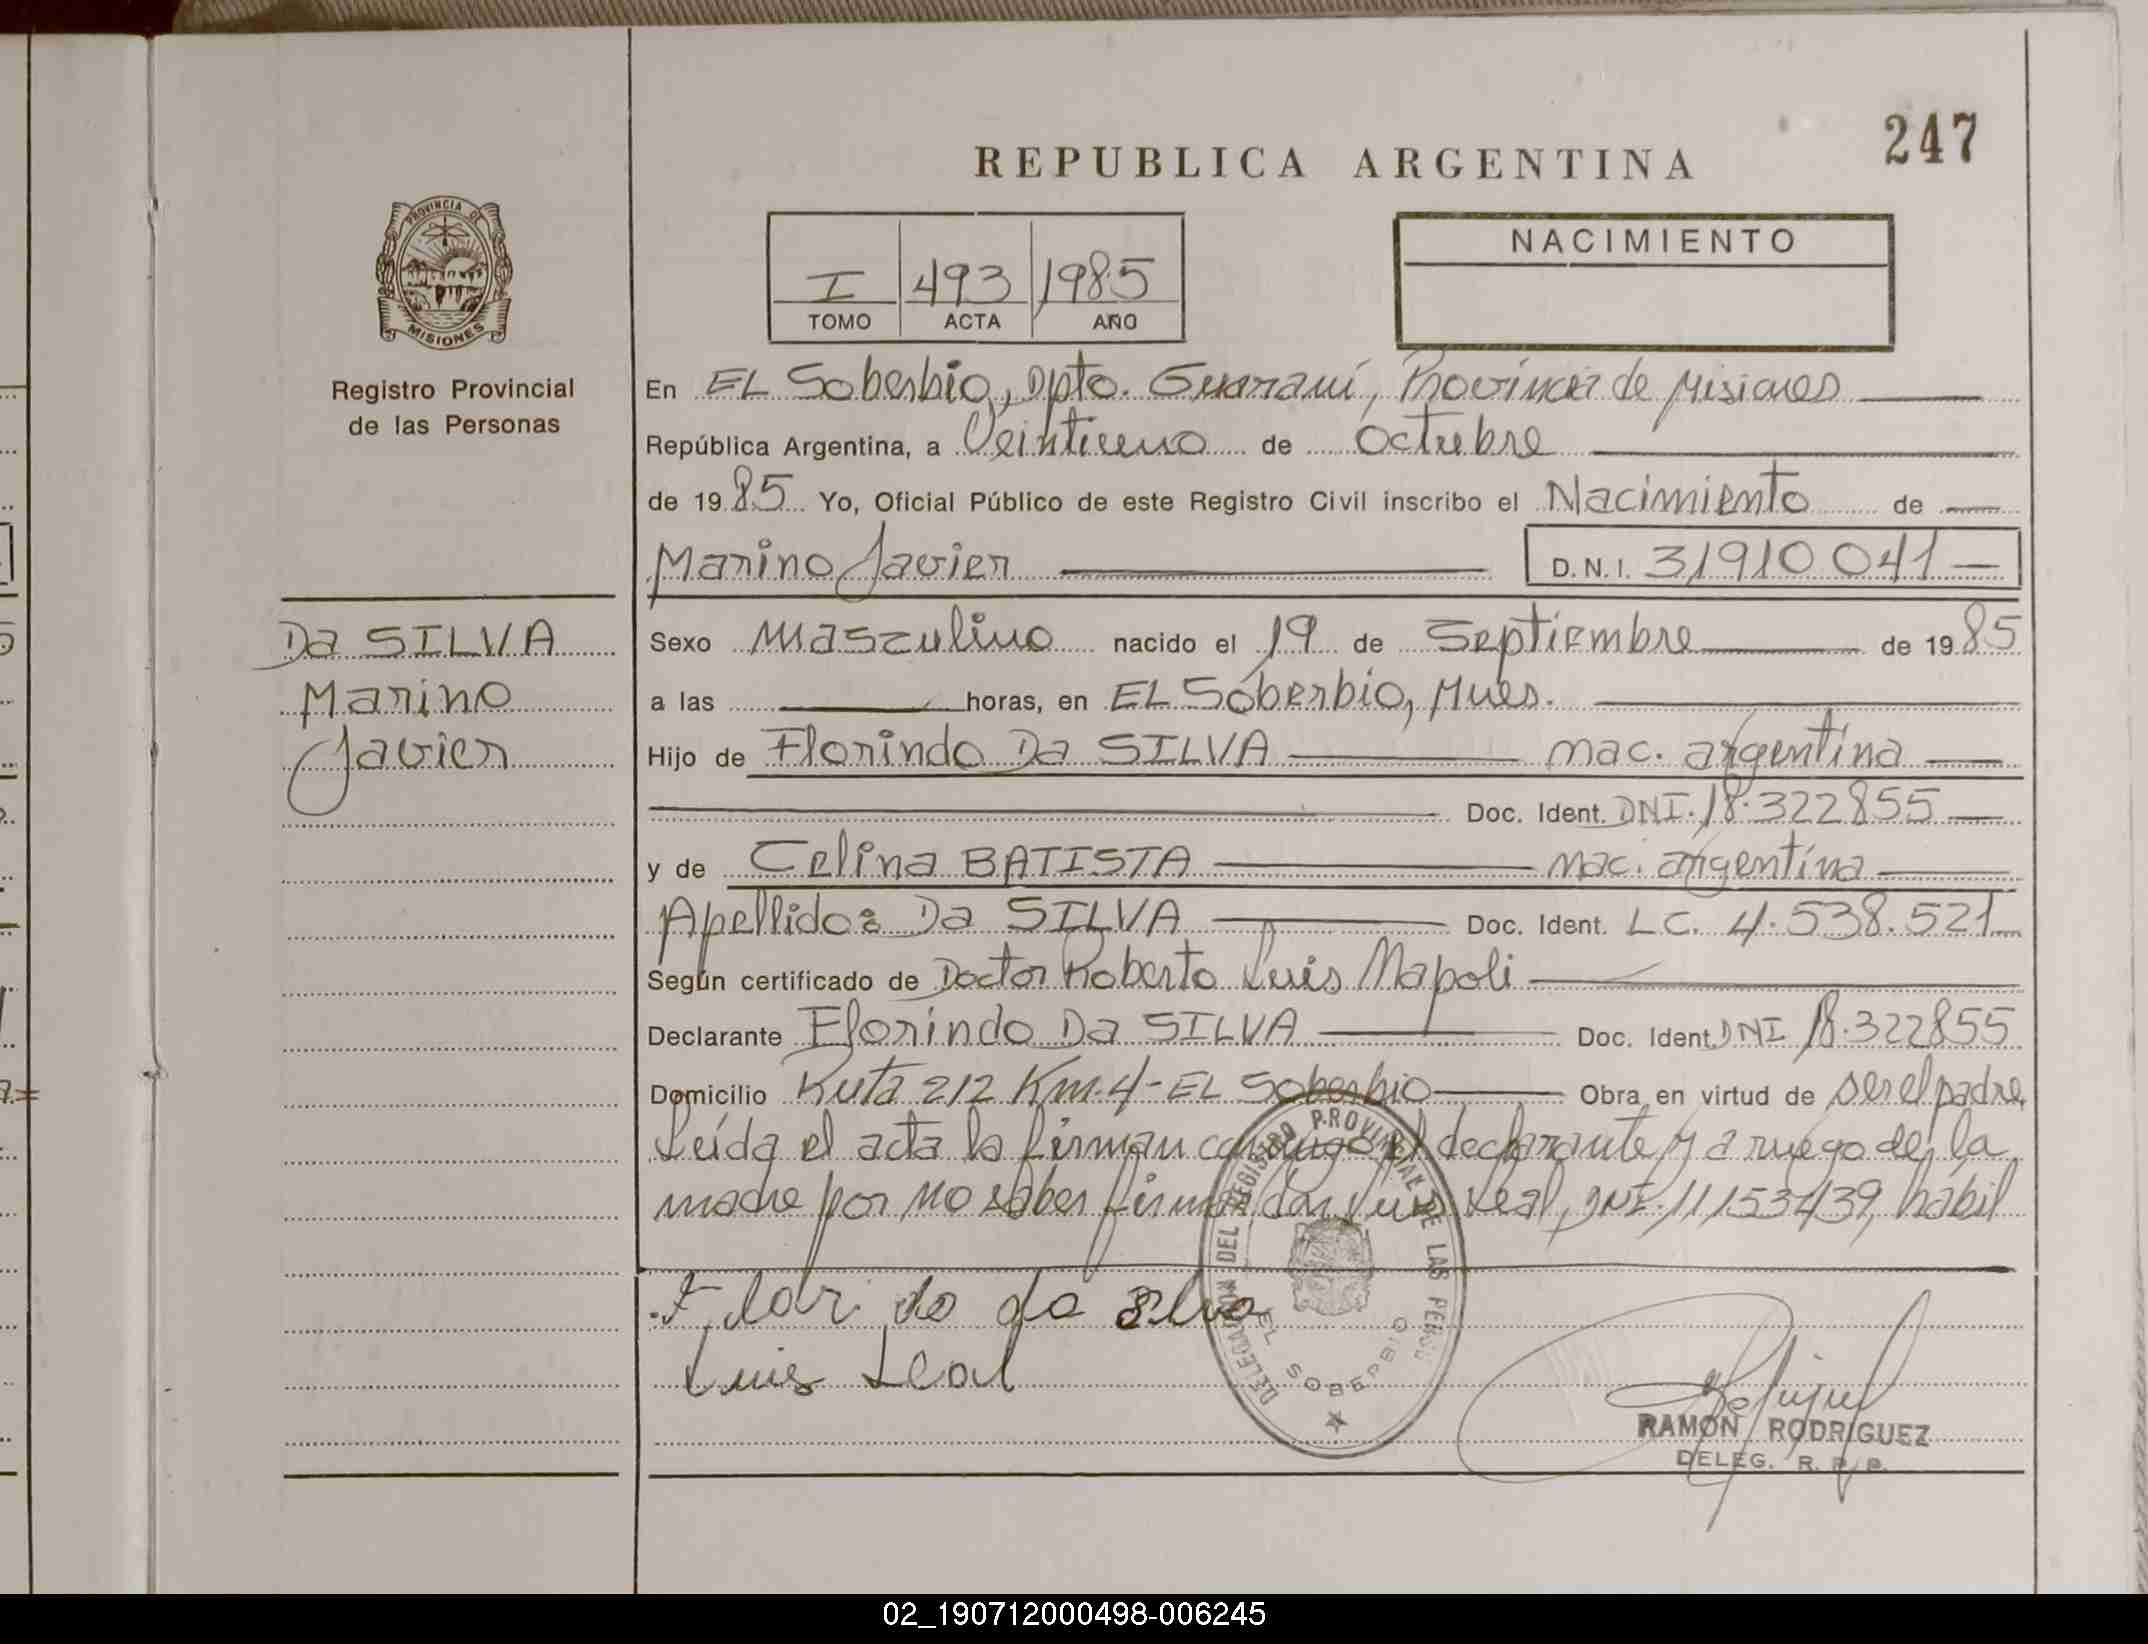 247
REPUBLICA ARGENTINA
PROVINCIA DE
MISIONES
Registro Provincial
de las Personas
NACIMIENTO
I 493 1985
TOMO ACTA AÑO
En EL Soberbio, Dpto. Guaraní, Provincia de Misiones
República Argentina, a Veintiuno de Octubre
de 1985 Yo, Oficial Público de este Registro Civil inscribo el Nacimiento de
Marino Javier D.N.I. 31910041
Da SILVA
Marino
Javier
Sexo Masculino nacido el 19 de Septiembre de 1985
a las horas, en EL Soberbio, Mnes.
Hijo de Florindo Da SILVA nac. argentina
Doc. Ident. DNI. 18.322855
y de Celina BATISTA nac. argentina
Apellido: Da SILVA Doc. Ident. LC. 4.538.521
Según certificado de Doctor Roberto Luis Napoli
Declarante Florindo Da SILVA Doc. Ident. DNI 18.322855
Domicilio Ruta 212 Km.4-EL Soberbio Obra en virtud de ser el padre
Leída el acta la firman conmigo el declarante y a ruego de la
madre por no saber firmar don Luis Leal, DNI. 11153439, hábil
Flori do da silva
Luis Leal
DELEGACION DEL REGISTRO PROVINCIAL DE LAS PERS
EL SOBERBIO
RAMON RODRIGUEZ
DELEG. R. P. P.
02_190712000498-006245